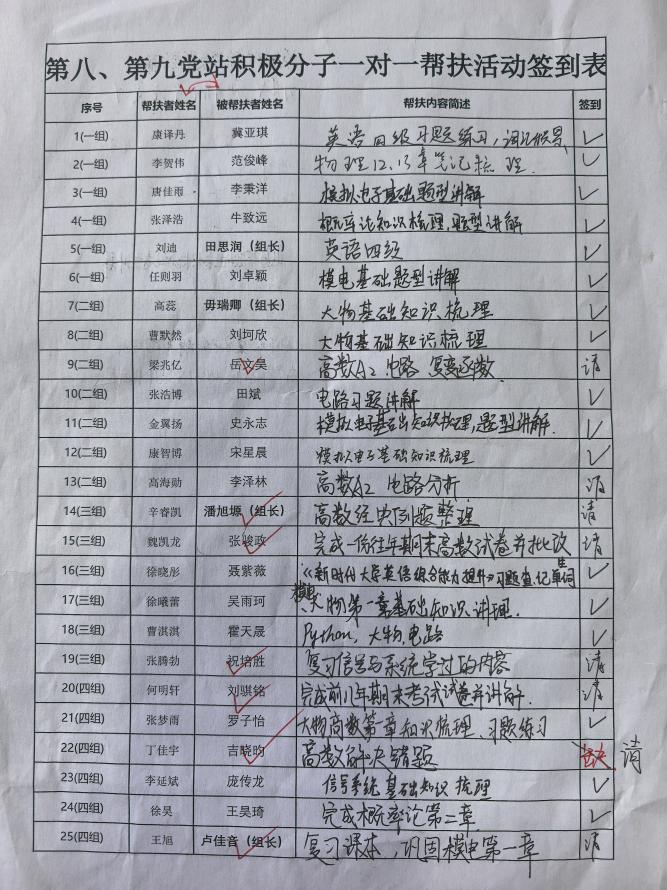 第八、第九党站积极分子一对一帮扶活动签到表
序号 帮扶者姓名 被帮扶者姓名 帮扶内容简述 签到
1(一组) 康译丹 冀亚琪 英语四级习题练习,词汇 ✓
2(一组) 李贺伟 范俊峰 物理12,13章笔记梳理. ✓
3(一组) 唐佳雨 李秉洋 模拟电子基础题型讲解 ✓
4(一组) 张泽浩 牛致远 概率论知识梳理,题型讲解 ✓
5(一组) 刘迪 田思润(组长) 英语四级 ✓
6(一组) 任则羽 刘卓颖 模电基础题型讲解 ✓
7(二组) 高蕊 毋瑞卿(组长) 大物基础知识梳理 ✓
8(二组) 曹默然 刘坷欣 大物基础知识梳理 ✓
9(二组) 梁兆亿 岳文昊 高数A2 电路 复变函数 请
10(二组) 张浩博 田斌 电路习题讲解 ✓
11(二组) 金翼扬 史永志 模拟电子基础知识梳理,题型讲解. ✓
12(二组) 康智博 宋星晨 模拟电子基础知识梳理 ✓
13(二组) 高海勋 李泽林 高数A2 电路分析 请
14(三组) 辛睿凯 潘旭塬(组长) 高数经典例题整理 请
15(三组) 魏凯龙 张峻政 完成一份往年期末高数试卷并批改 请
16(三组) 徐晓彤 聂紫薇 《新时代大学英语综合能力提升》习题查、记生单词 ✓
17(三组) 徐曦蕾 吴雨珂 模电、大物第一章基础知识讲理. ✓
18(三组) 曹淇淇 霍天晟 Python,大物,电路 ✓
19(三组) 张腾勃 祝培胜 复习信号与系统学过的内容 请
20(四组) 何明轩 刘骐铭 完成前几年期末考试试卷并讲解. 请
21(四组) 张梦雨 罗子怡 大物高数第一章知识梳理、习题练习 ✓
22(四组) 丁佳宇 吉晓昀 高数解决错题 缺 请
23(四组) 李延斌 庞传龙 信号系统基础知识梳理 ✓
24(四组) 徐昊 王昊琦 完成概率论第二章. ✓
25(四组) 王旭 卢佳音(组长) 复习课本,巩固模电第一章 请